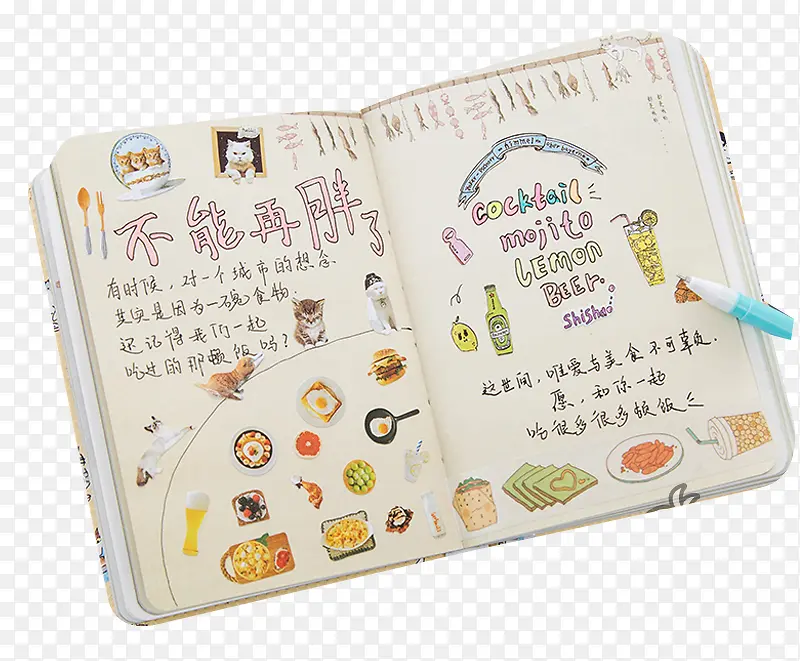 不能再胖了
有时候，对一个城市的想念
其实是因为一碗食物.
还记得我们一起
吃过的那顿饭吗？
himmel
cocktail
mojito
LEMON
BEER.
Shisha
这世间，唯爱与美食不可辜负.
愿，和你一起
吃很多很多顿饭